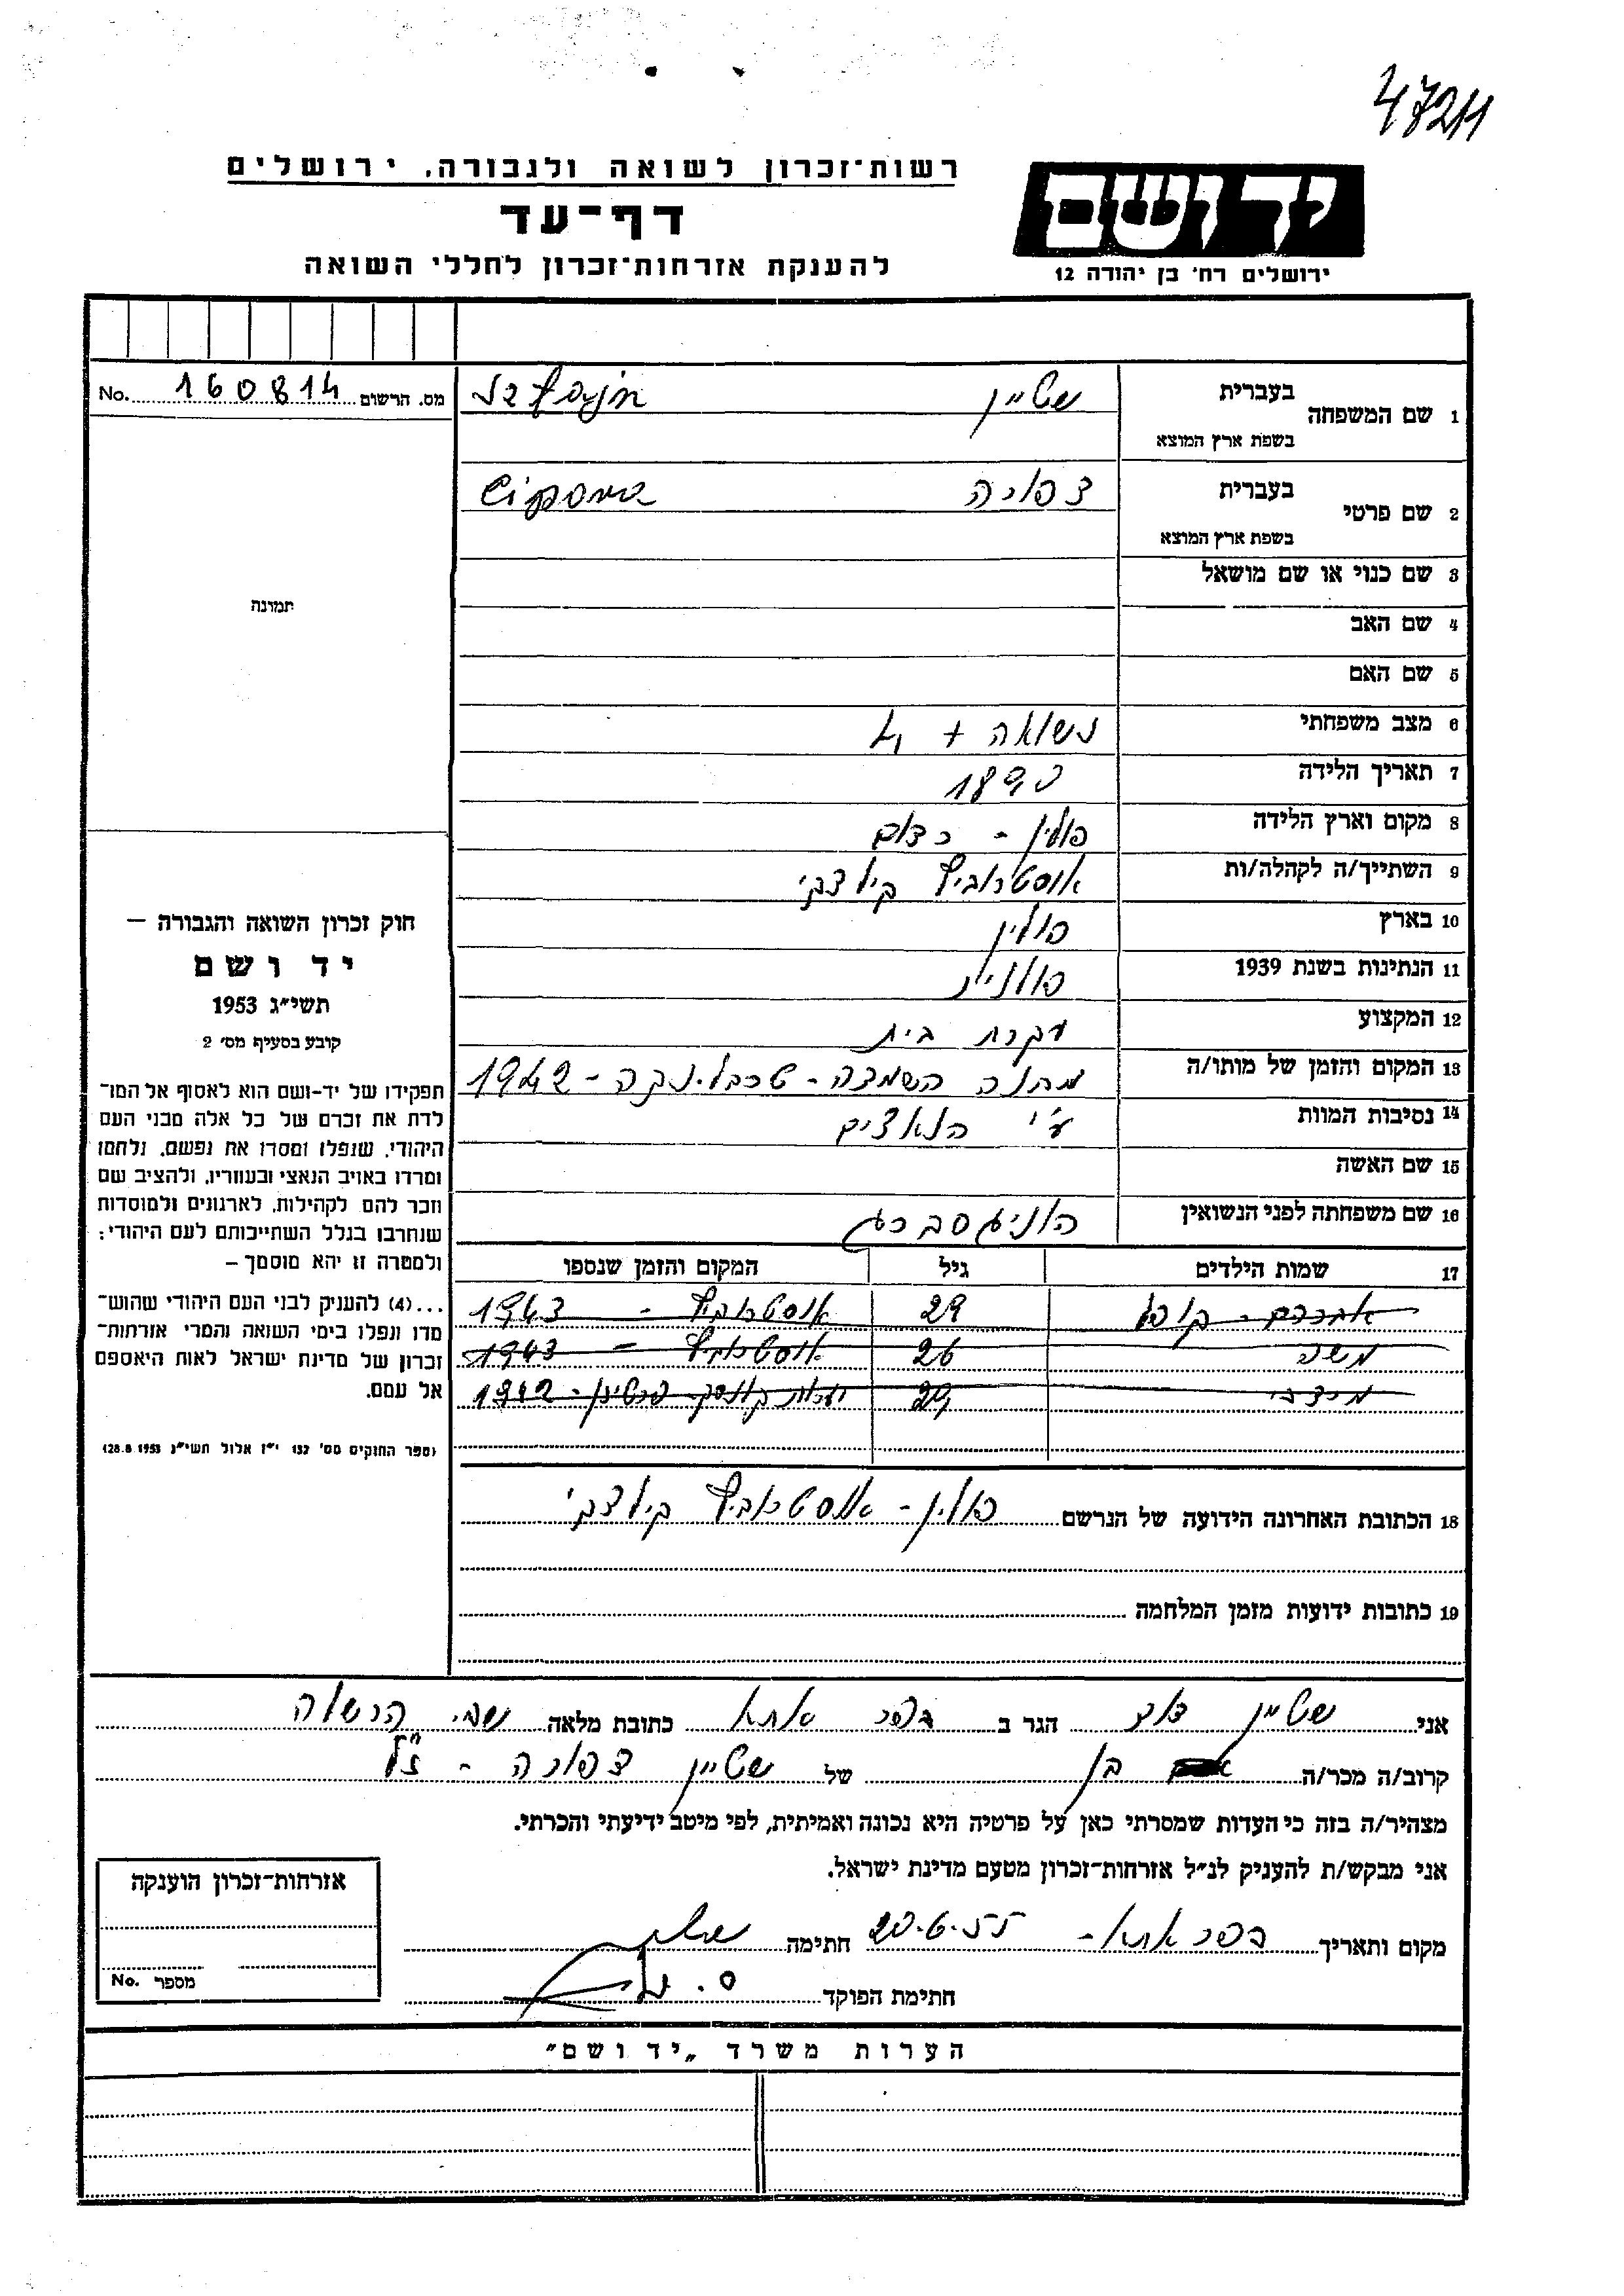 47211
רשות־זכרון לשואה ולגבורה, ירושלים
דף־עד
להענקת אזרחות־זכרון לחללי השואה
יד ושם
ירושלים רח' בן יהודה 12
מס. הרשום 160814 No.
1 שם המשפחה בעברית שטיין
בשפת ארץ המוצא
2 שם פרטי בעברית צפורה
בשפת ארץ המוצא
3 שם כנוי או שם מושאל
4 שם האב
5 שם האם
6 מצב משפחתי נשואה +
7 תאריך הלידה 1890
8 מקום וארץ הלידה פולין -
9 השתייך/ה לקהלה/ות אוסטרוביץ קילצקי
10 בארץ פולין
11 הנתינות בשנת 1939 פולנית
12 המקצוע עקרת בית
13 המקום והזמן של מותו/ה מחנה השמדה - טרבלינקה - 1942
14 נסיבות המוות ע"י הנאצים
15 שם האשה
16 שם משפחתה לפני הנשואין הוניגסברג
17 שמות הילדים גיל המקום והזמן שנספו
אברהם - 29 אוסטרוביץ - 1943
משה 26 אוסטרוביץ - 1943
מרדכי 1942
18 הכתובת האחרונה הידועה של הנרשם פולין - אוסטרוביץ קילצקי
19 כתובות ידועות מזמן המלחמה
תמונה
חוק זכרון השואה והגבורה –
יד ושם
תשי"ג 1953
קובע בסעיף מס' 2
תפקידו של יד-ושם הוא לאסוף אל המו־
לדת את זכרם של כל אלה מבני העם
היהודי, שנפלו ומסרו את נפשם, נלחמו
ומרדו באויב הנאצי ובעוזריו, ולהציב שם
וזכר להם לקהילות, לארגונים ולמוסדות
שנחרבו בגלל השתייכותם לעם היהודי;
ולמטרה זו יהא מוסמך –
...(4) להעניק לבני העם היהודי שהוש־
מדו ונפלו בימי השואה והמרי אזרחות־
זכרון של מדינת ישראל לאות היאספם
אל עמם.
(ספר החוקים מס' 132 י"ז אלול תשי"ג 28.8.1953)
אני שטיין דוד הגר ב כפר אתא כתובת מלאה
קרוב/ה מכר/ה בן של שטיין צפורה - ז"ל
מצהיר/ה בזה כי העדות שמסרתי כאן על פרטיה היא נכונה ואמיתית, לפי מיטב ידיעתי והכרתי.
אני מבקש/ת להעניק לנ"ל אזרחות־זכרון מטעם מדינת ישראל.
מקום ותאריך כפר אתא - 20.6.55 חתימה
חתימת הפוקד
אזרחות־זכרון הוענקה
מספר No.
הערות משרד „יד ושם"